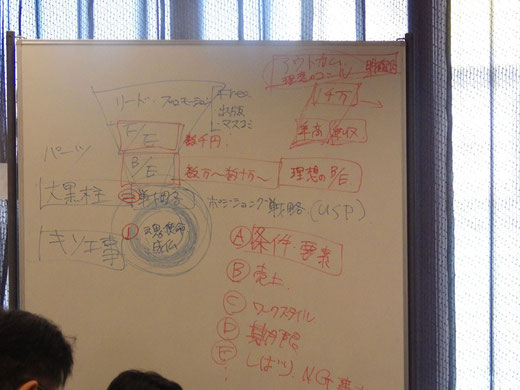 アウトカム
理想のゴール 明確化
リード・プロモーション
出版
マスコミ
千万
F/E
数千円
年商 年収
パーツ
B/E
数万〜数十万〜 理想のB/E
大黒柱
ポジショニング戦略 (USP)
キソ工事
① 魂 使命
Ⓐ 条件・要素
Ⓑ 売上
Ⓒ ワークスタイル
Ⓓ 期間
Ⓔ しばり、NG